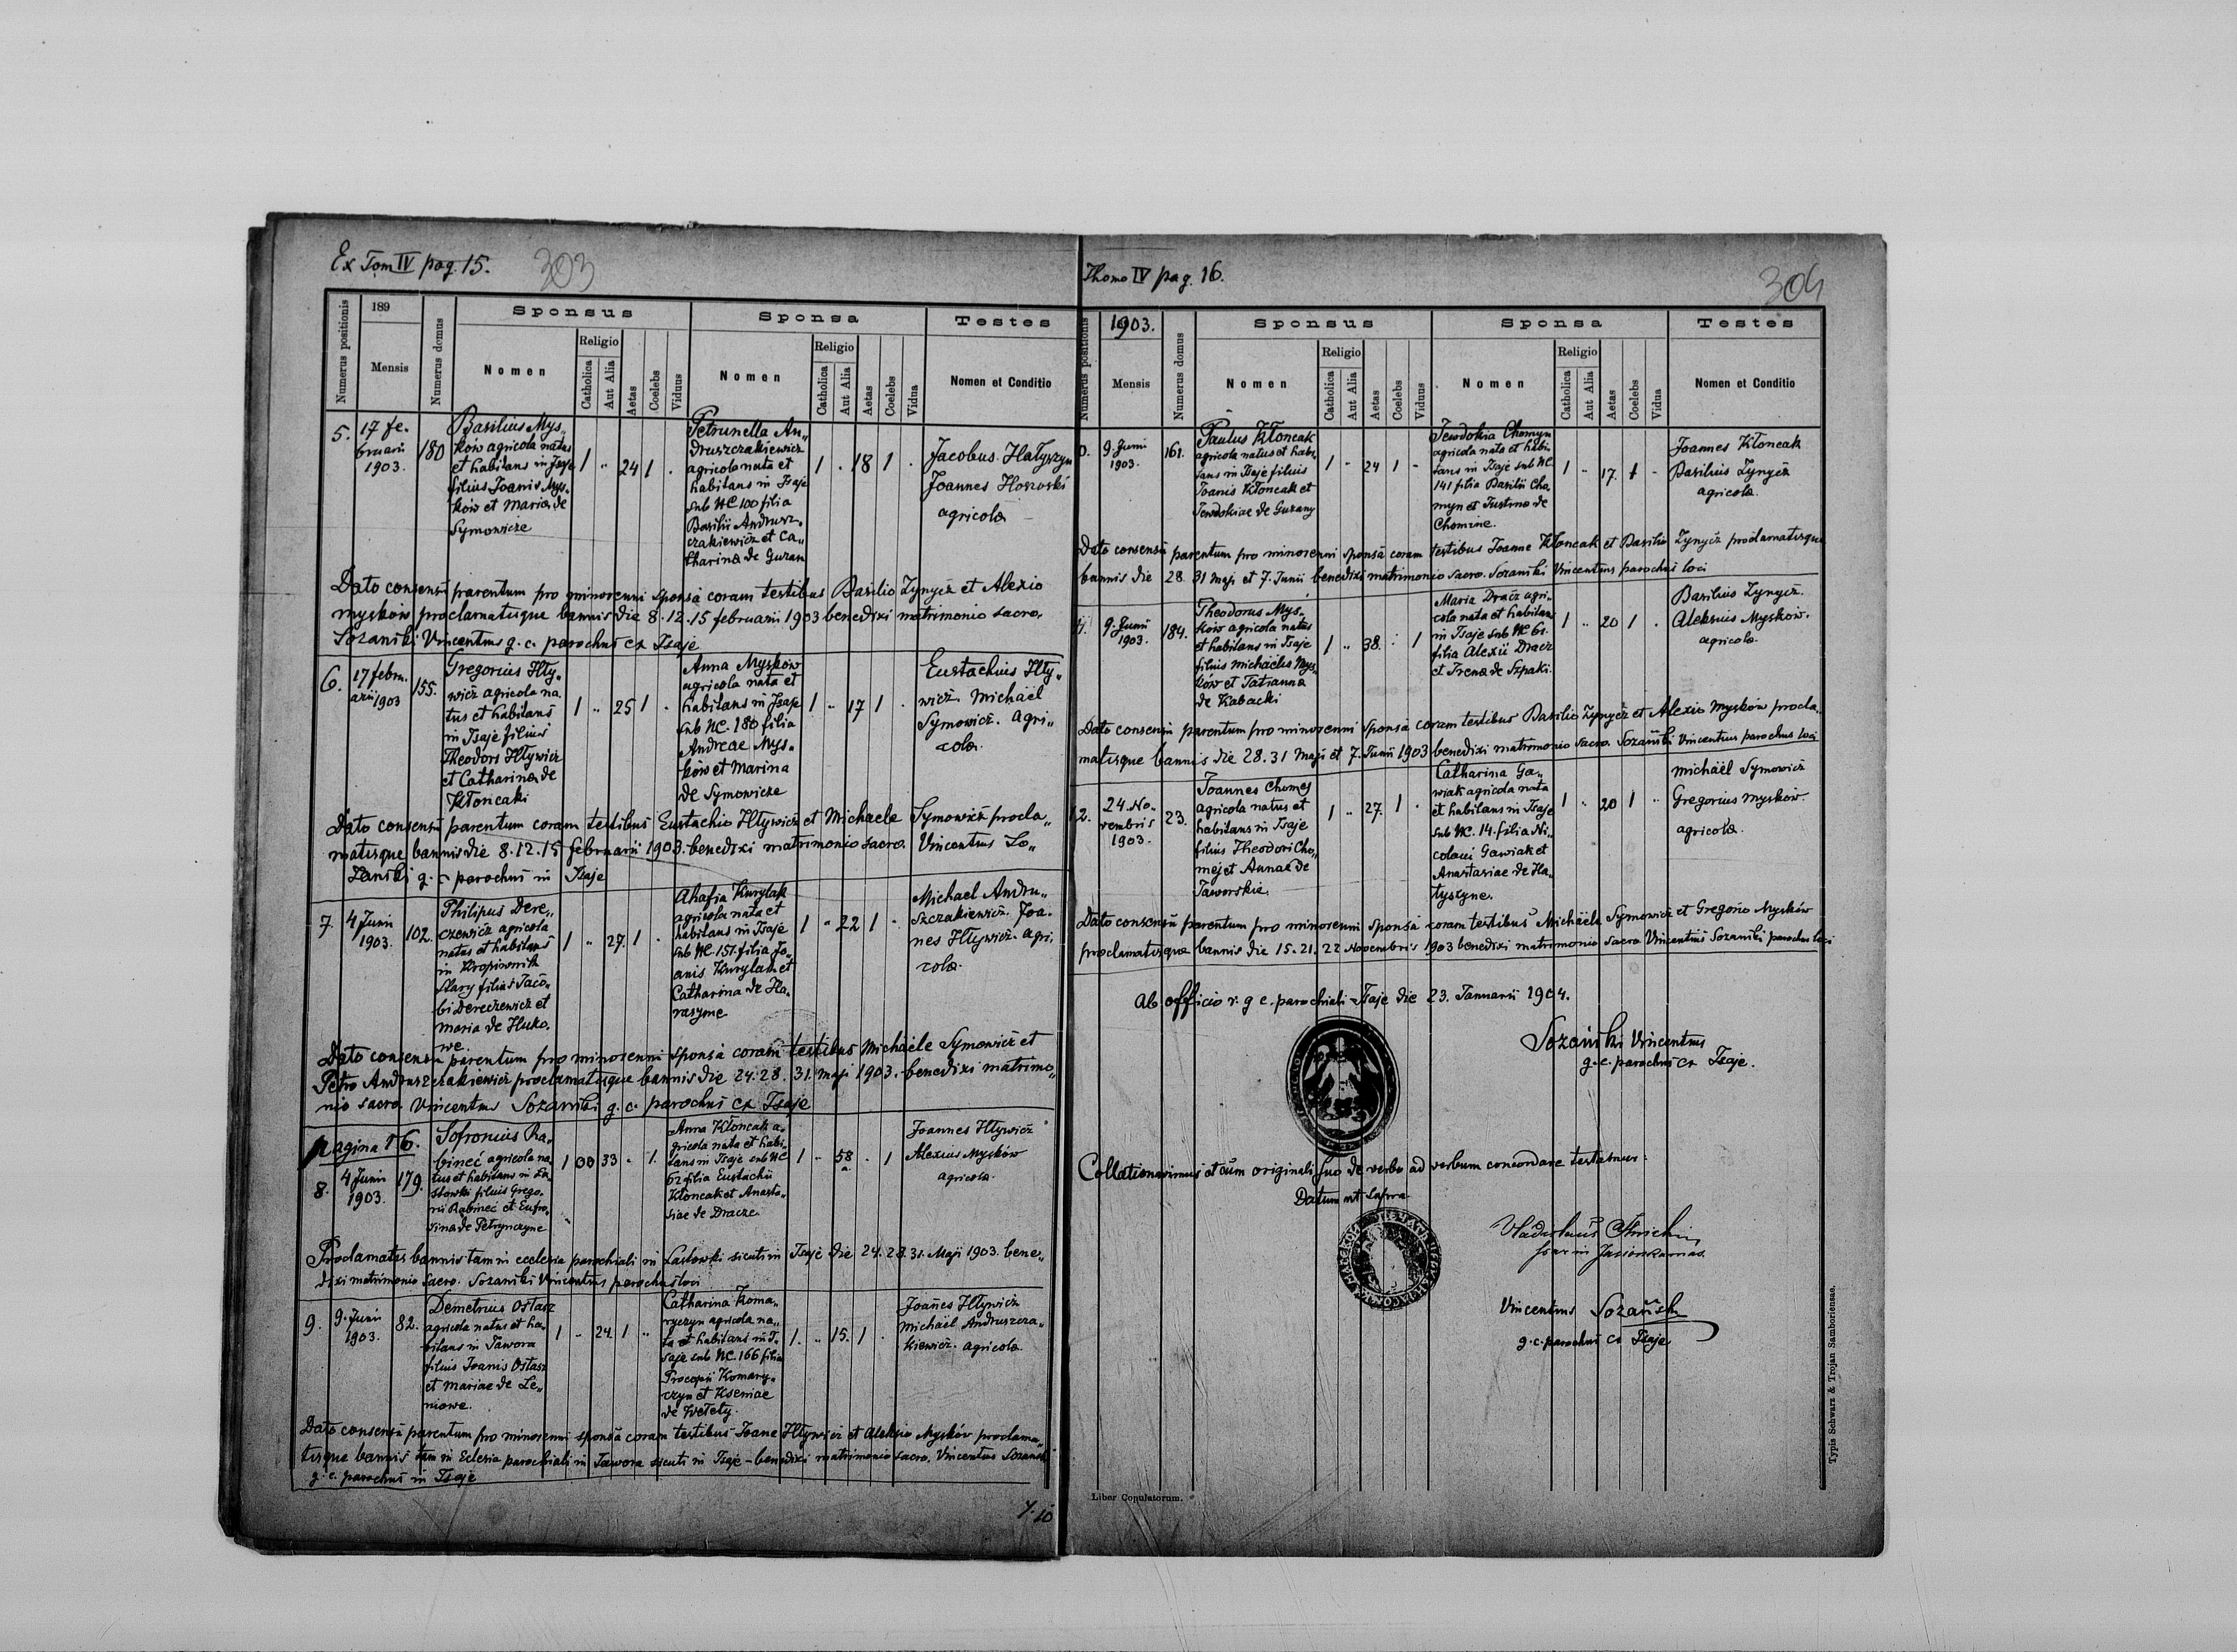 Ex Tom IV pag. 15.
303
Numerus positionis
189
Mensis
Numerus domus
Sponsus
Nomen
Religio
Catholica
Aut Alia
Aetas
Coelebs
Viduus
Sponsa
Nomen
Religio
Catholica
Aut Alia
Aetas
Coelebs
Vidua
Testes
Nomen et Conditio
5.
17 fe„
bruarii
1903.
180
Basilius Mys„
ków agricola natus
et habitans in Isaje
filius Joanis Mys„
ków et Maria de
Symowicze
1 „ 24 1 .
Petrunella An„
druszczakiewicz
agricola nata et
habitans in Isaje
sub NC 100 filia
Basilii Andrusz„
czakiewicz et Ca„
tharina de Guzan
1 . 18 1 .
Jacobus Hatyszyn
Joannes Hoszowski
agricola
Dato consensu parentum pro minorenni sponsa coram testibus Basilio Zynycz et Alexio
Myskòw proclamatisque bannis die 8. 12. 15 februarii 1903 benedixi matrimonio sacro.
Sozanski Vincentius g. c. parochus ex Isaje
6.
17 febru„
arii 1903
155.
Gregorius Hły„
wicz agricola na
tus et habitans
in Isaje filius
Theodori Hływicz
et Catharina de
Kłoncaki
1 „ 25 1 .
Anna Myskòw
agricola nata et
habitans in Isaje
sub NC. 180 filia
Andreae Mys„
ków et Marina
de Symowicze
1 „ 17 1 .
Eustachius Hły„
wicz. Michäel
Symowicz. agri„
cola.
Dato consensu parentum coram testibus Eustachio Hływicz et Michaele Symowicz procla„
matisque bannis die 8. 12. 15 februarii 1903. benedixi matrimonio sacro. Vincentius So„
zanski g. c parochus in Isaje
7.
4 Junii
1903.
102.
Philipus Dere„
czewicz agricola
natus et habitans
in Kropiwnik
Stary filius Jaco„
bi Dereczewicz et
Maria de Huko„
we.
1 „ 27. 1 .
Ahafia Kurylak
agricola nata et
habitans in Isaje
sub NC. 157. filia Jo„
anis Kurylak et
Catharina de Ha„
rasyme
1 „ 22 1 „
Michael Andru„
szczakiewicz. Joa„
nes Hływicz. agri„
cola.
Dato consensu parentum pro minorenni sponsa coram testibus Michäele Symowicz et
Petro Andruszczakiewicz proclamatisque bannis die 24. 28. 31. Maji 1903. benedixi matrimo„
nio sacro. Vincentius Sozanski g. c. parochus ex Isaje
Pagina 16.
8.
4 Junii
1903.
179.
Sofronius Ra„
bineć agricola na„
tus et habitans in La„
stowki filius Grego„
rii Rabineć et Eufro„
sina de Petrynczyne
1 33 „ 1.
Anna Kłoncak a„
gricola nata et habi„
tans in Isaje sub NC
62 filia Eustachii
Kłoncak et Anasta„
siae de Dracze
1 „ 58 . 1
Joannes Hływicz
Alexius Myskòw
agricola.
Proclamatis bannis tam in ecclesia parochiali in Lastowki sicuti in Isaje die 24. 28. 31. Maji 1903. bene„
dixi matrimonio sacro. Sozanski Vincentius parochus loci
9.
9. Junii
1903.
82.
Demetrius Ostasz
agricola natus et ha„
bitans in Jawora
filius Joanis Ostasz
et Mariae de Le„
niowe.
1 „ 24. 1 „
Catharina Koma„
ryczyn agricola na„
ta et habitans in I„
saje sub NC. 166 filia
Procopii Komary„
czyn et Kseniae
de Wetety.
1. „ 15. 1 .
Joänes Hływicz
Michäel Andruszcza„
kiewicz. agricola
Dato consensu parentum pro minorenni sponsa coram testibus Joane Hływicz et Aleksio Myskòw proclama„
tisque bannis tam in Eclesia parochiali in Jawora sicuti in Isaje – benedixi matrimonio sacro. Vincentius Sozanski
g. c. parochus in Isaje
Thomo IV pag. 16.
304
Numerus positionis
1903.
Mensis
Numerus domus
Sponsus
Nomen
Religio
Catholica
Aut Alia
Aetas
Coelebs
Viduus
Sponsa
Nomen
Religio
Catholica
Aut Alia
Aetas
Coelebs
Vidua
Testes
Nomen et Conditio
9. Junii
1903.
161.
Paulus Kłoncak
agricola natus et habi„
tans in Isaje filius
Joanis Kłoncak et
Tewdokiae de Guzany
1 „ 24 1 „
Tewdokia Chomyn
agricola nata et habi„
tans in Isaje sub NC.
141 filia Basilii Cho„
myn et Justina de
Chomine.
1 „ 17. 1 „
Joannes Kłoncak
Basilius Zynycz
agricola.
Dato consensu parentum pro minorenni sponsa coram testibus Joanne Kłoncak et Basilio Zynycz proclamatisque
bannis die 28. 31 Maji et 7. Junii benedixi matrimonio sacro. Sozanski Vincentius parochus loci
9. Junii
1903.
184.
Theodorus Mys„
ków agricola natus
et habitans in Isaje
filius Michäelis Mys„
ków et Tatianna
de Kabacki
1 „ 38. . 1
Maria Dracz agri„
cola nata et habitans
in Isaje sub NC 61.
filia Alexii Dracz
et Irena de Szpaki.
1 „ 20 1 .
Basilius Zynycz.
Aleksius Myskòw.
agricola.
Dato consensu parentum pro minorenni sponsa coram testibus Basilio Zynycz et Alexio Myskòw procla„
matisque bannis die 28. 31 Maji et 7. Junii 1903 benedixi matrimonio sacro. Sozański Vincentius parochus loci
12.
24. No„
vembris
1903.
23.
Joannes Chomej
agricola natus et
habitans in Isaje
filius Theodori Cho„
mej et Annae de
Jaworskie
1 „ 27. 1 .
Catharina Ga„
wiak agricola nata
et habitans in Isaje
sub NC. 14. filia Ni„
colaui Gawiak et
Anastasiae de Ha„
tyszyne.
1 „ 20 1 „
Michäel Symowicz
Gregorius Myskòw.
agricola.
Dato consensu parentum pro minorenni sponsa coram testibus Michäele Symowicz et Gregorio Myskòw
proclamatisque bannis die 15. 21. 22 Novembris 1903 benedixi matrimonio sacro Vincentius Sozanski parochus loci
Ab officio r. g c. parochiali Isaje die 23. Januarii 1904.
Sozański Vincentius
g. c. parochus ex Isaje.
Collationavimus et cum originali suo de verbo ad verbum concordare testamur.
Datum ut supra
Vincentius Sozański
g. c. parochus ex Isaje
Liber Copulatorum.
Typis Schwarz & Trojan Samboriensae.